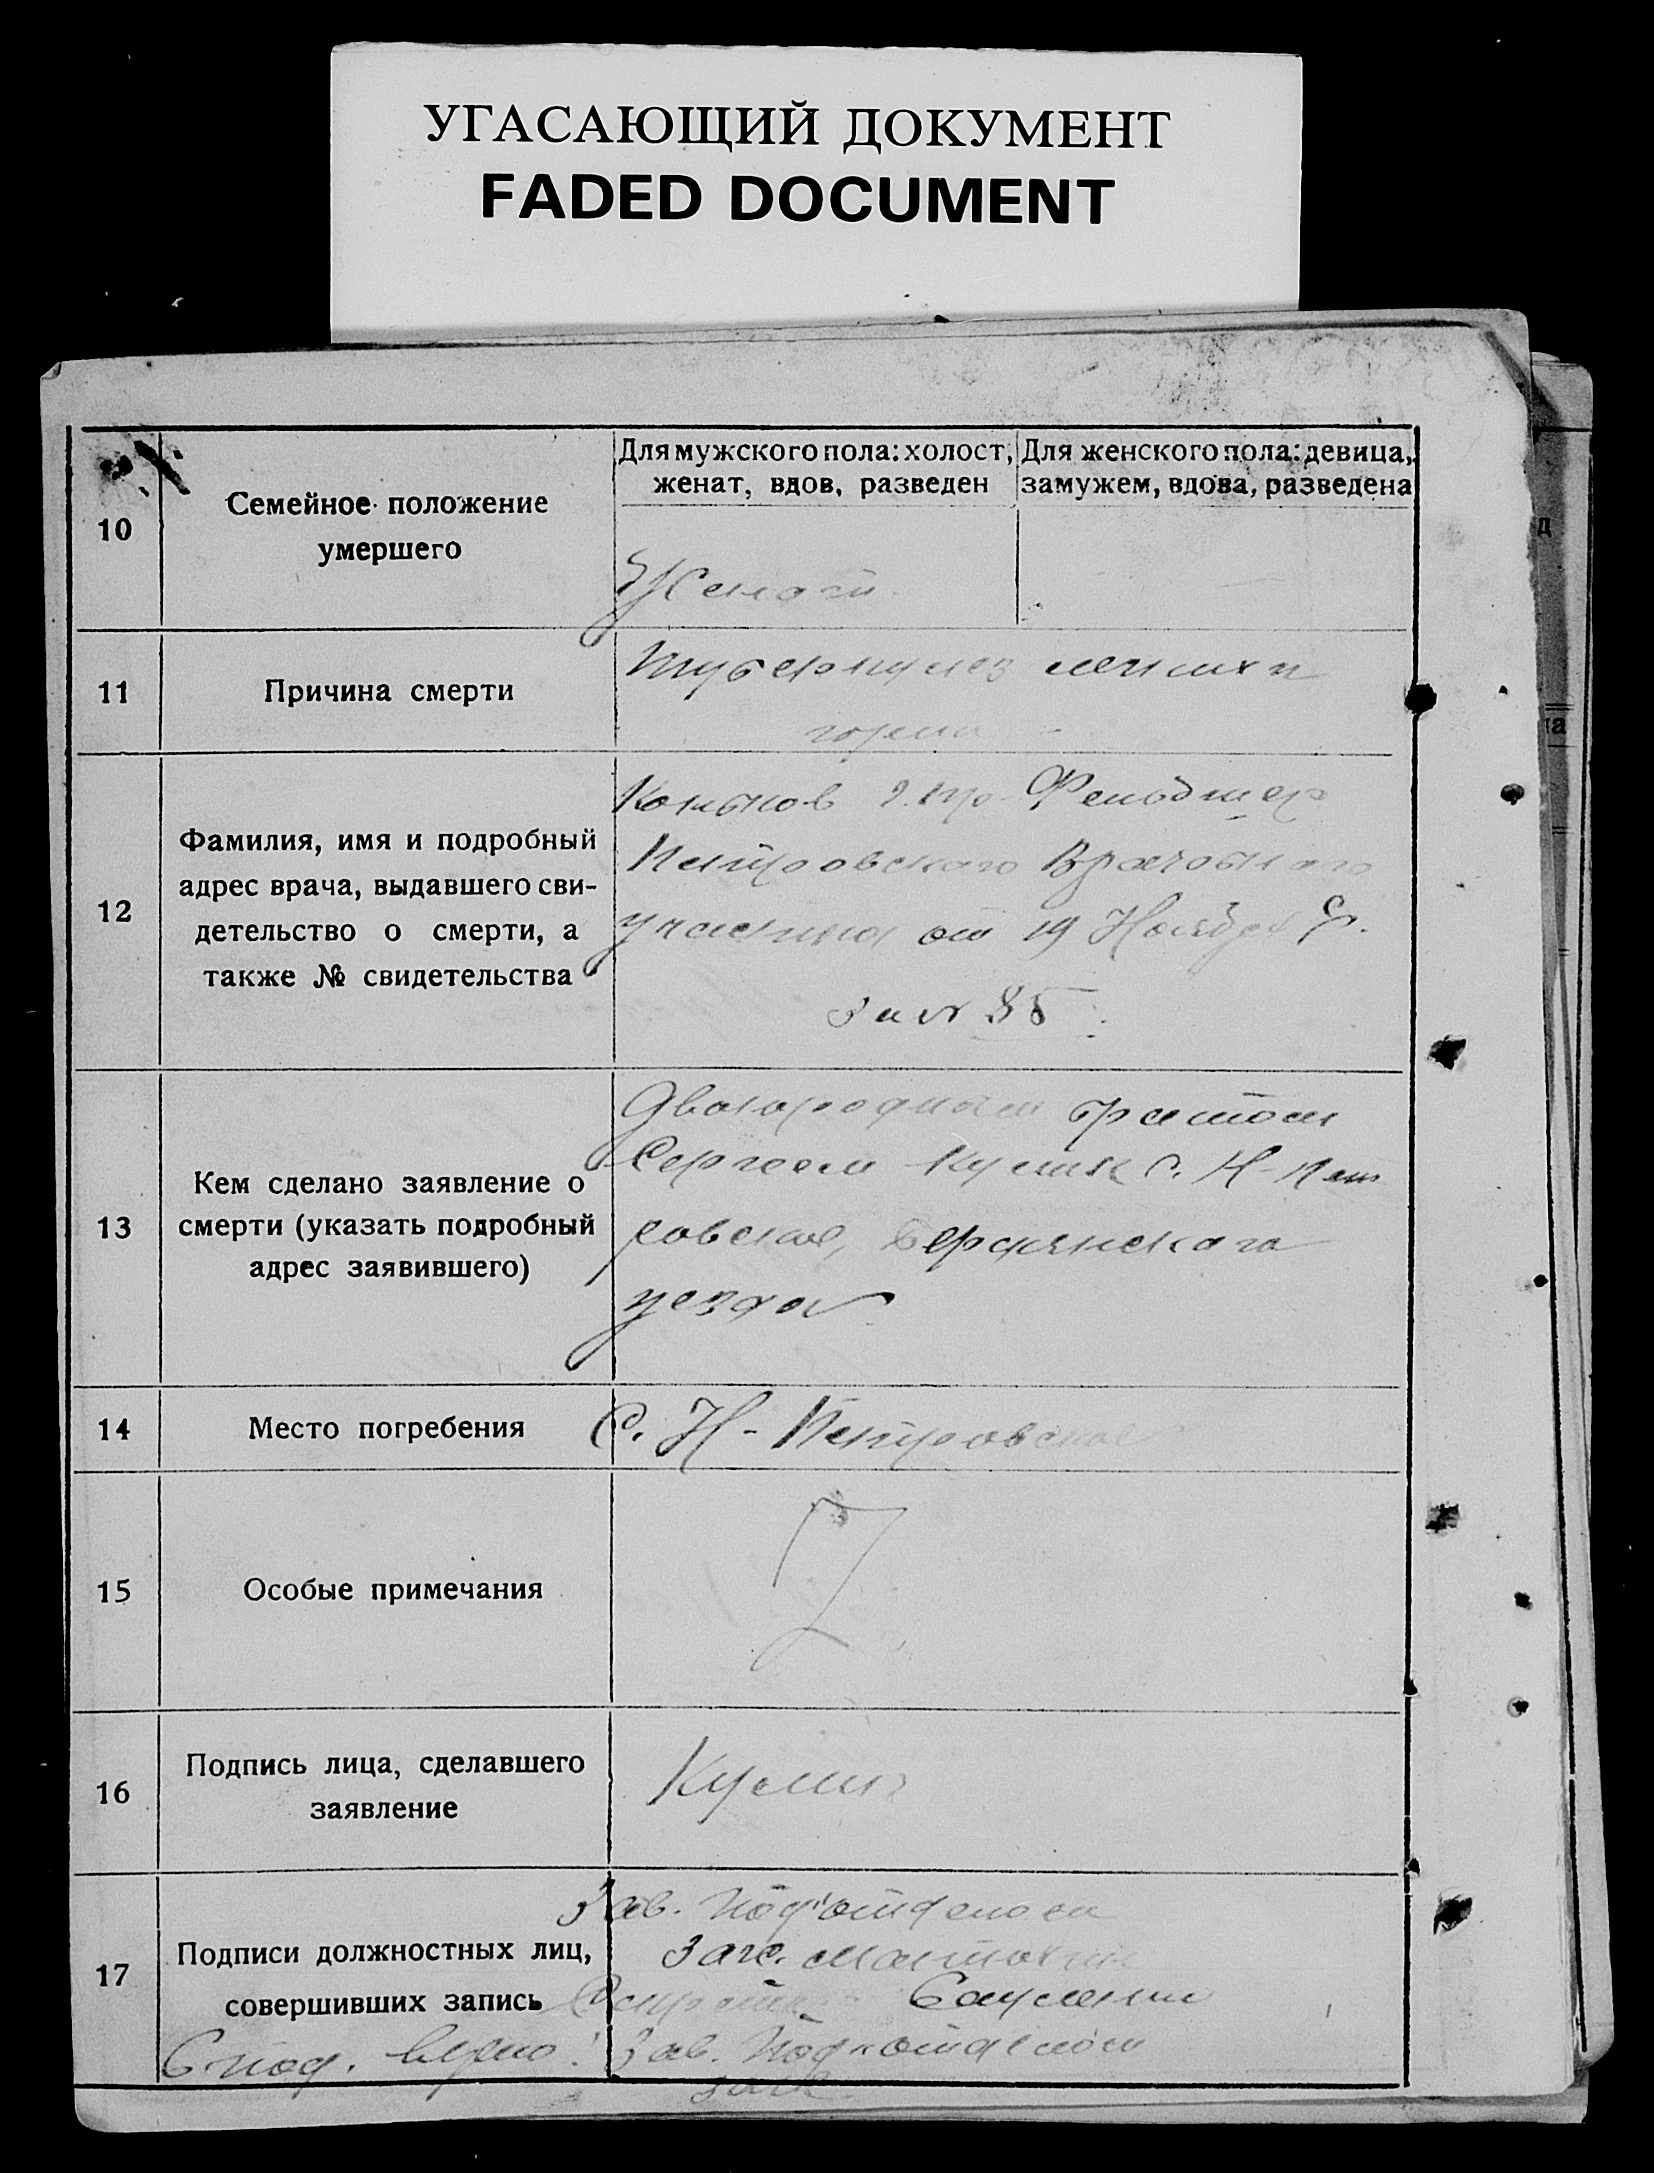 УГАСАЮЩИЙ ДОКУМЕНТ
FADED DOCUMENT
10
Семейное положение
умершего
Для мужского пола: холост,
женат, вдов, разведен
Для женского пола: девица,
замужем, вдова, разведена
Женат
11
Причина смерти
Туберкулез легких и
горла
12
Фамилия, имя и подробный
адрес врача, выдавшего сви-
детельство о смерти, а
также № свидетельства
Фельдшер
Петровского Врачебного
участка от 19 Ноября
за № 85
13
Кем сделано заявление о
смерти (указать подробный
адрес заявившего)
Двоюродным братом
Сергеем Кулик С. Н-Пет
ровское, Бердянского
уезда
14
Место погребения
С. Н-Петровское
15
Особые примечания
16
Подпись лица, сделавшего
заявление
Кулик
17
Подписи должностных лиц,
совершивших запись
Зав. Под'отделом
Загс.
С под. верно: Зав. Под'отделом
загс